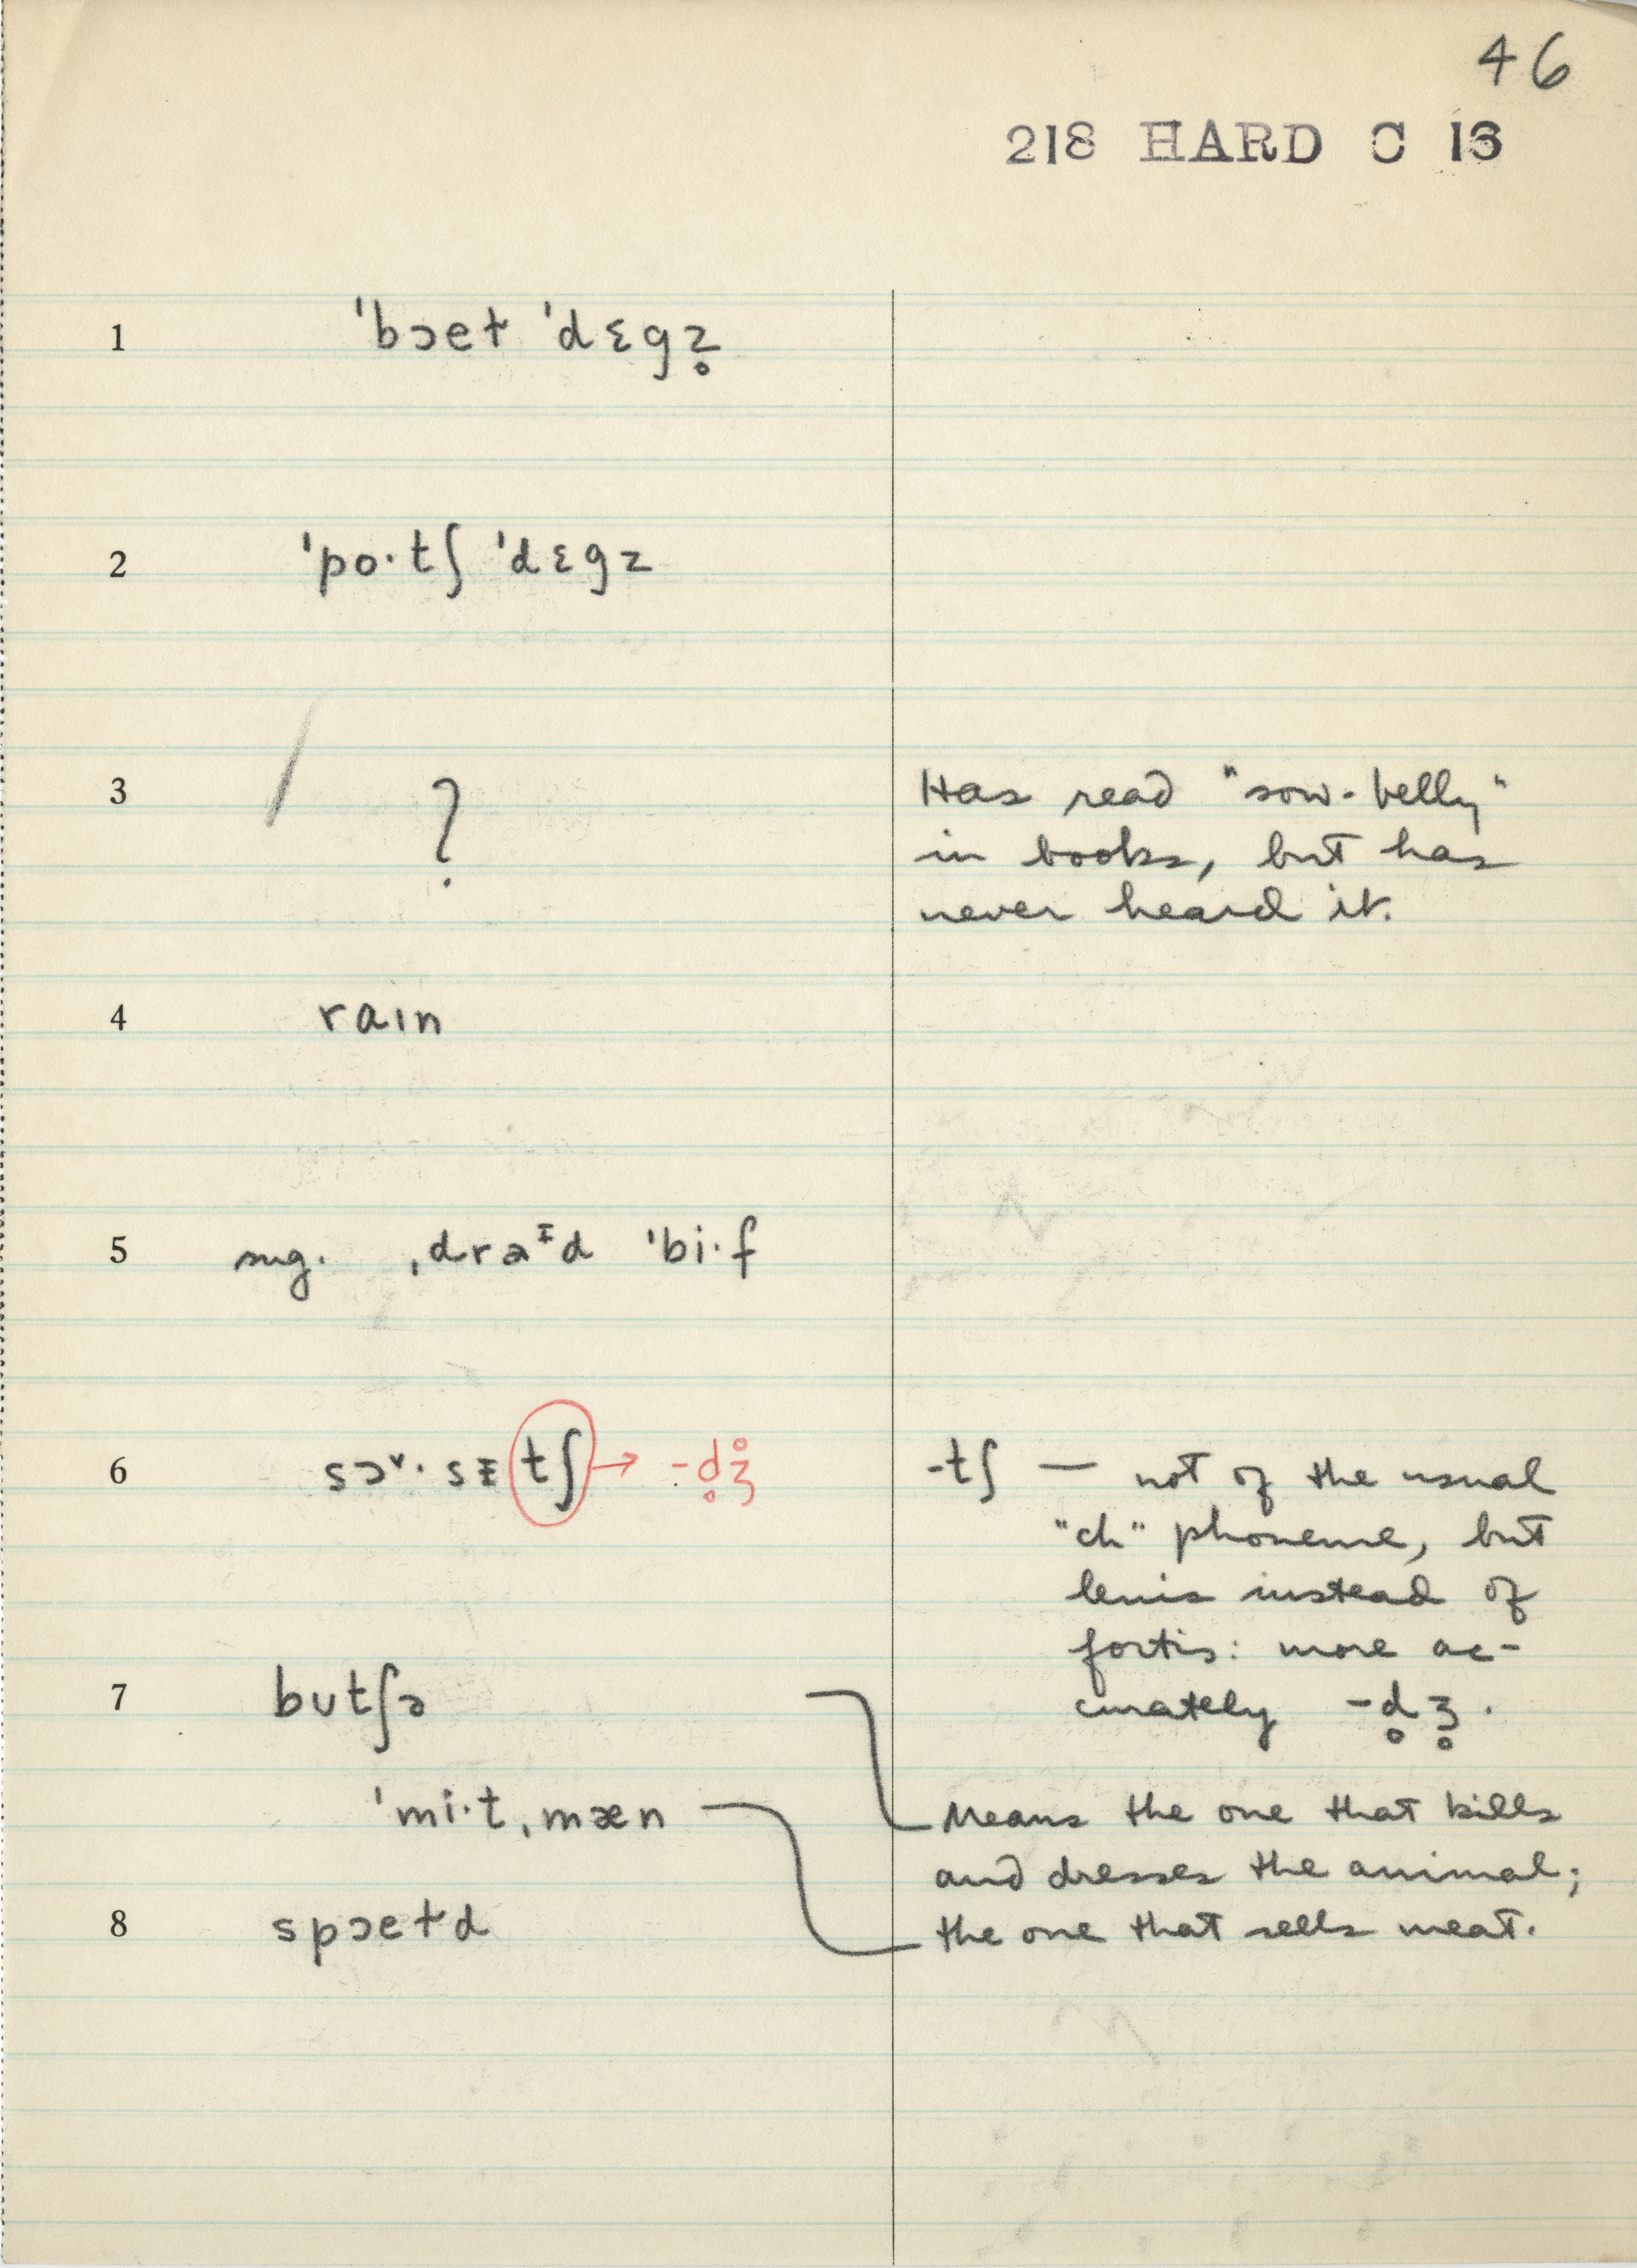 46
218 HARD C 13
1 ˈbɔeɫ ˈdɛgz̥
2 ˈpo·tʃ ˈdɛgz
3 ? Has read "sow-belly"
in books, but has
never heard it.
4 raɪn
5 sug. ˌdraᵻd ˈbi·f
6 sɔ˅·sᵻtʃ → -d̥ʒ̊ -tʃ — not of the usual
"ch" phoneme, but
lenis instead of
fortis: more ac-
7 bʊtʃə curately -d̥ʒ̊.
ˈmi·tˌmæn Means the one that kills
and dresses the animal;
8 spɔeɫd the one that sells meat.